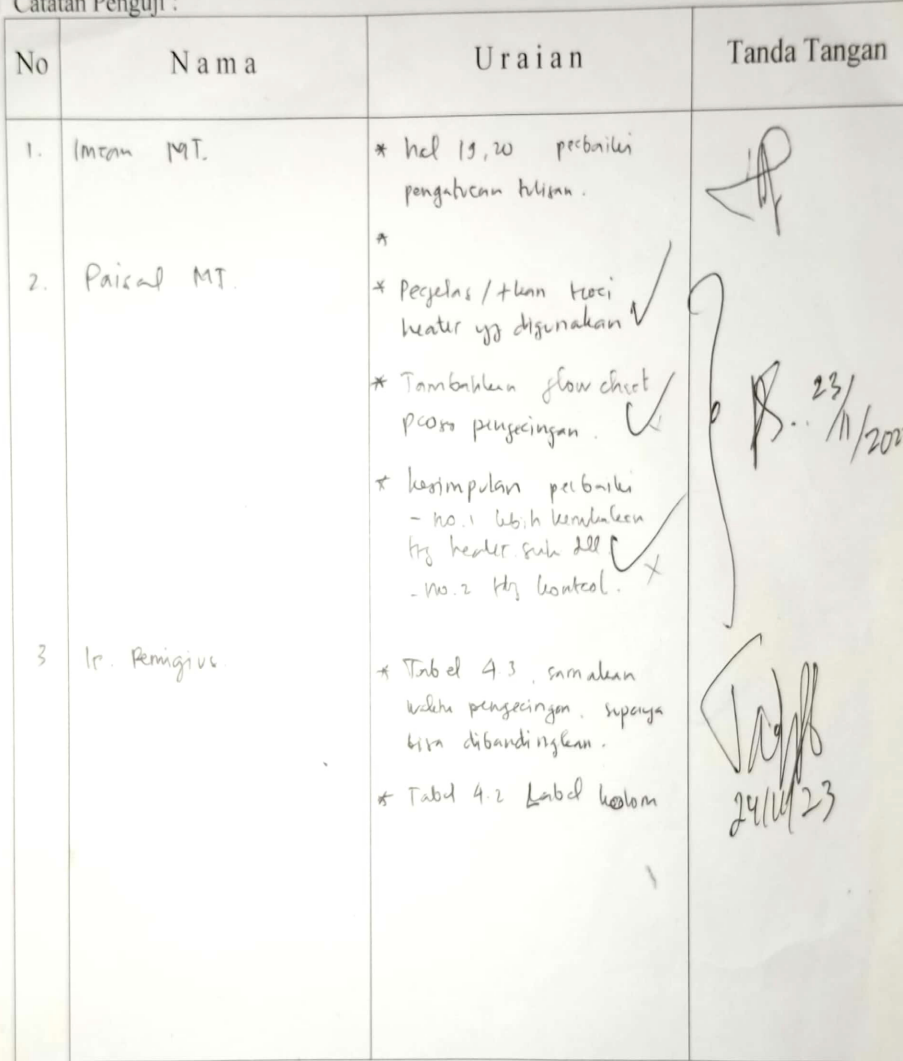 Catatan Penguji :
No
N a m a
U r a i a n
Tanda Tangan
1. Imran MT.
* hal 19, 20 perbaiki
pengaturan tulisan.
*
2. Paisal MT.
* Perjelas / + kan teori
heater yg digunakan
* Tambahkan flow chart
proses pengeringan.
* kesimpulan perbaiki
- no. 1 lebih tekankan
ttg heater. suhu dll
- no. 2 ttg kontrol.
23/11/202
3 Ir. Remigius
* Tabel 4.3, samakan
waktu pengeringan, supaya
bisa dibandingkan.
* Tabel 4.2 Label kolom
24/11/23